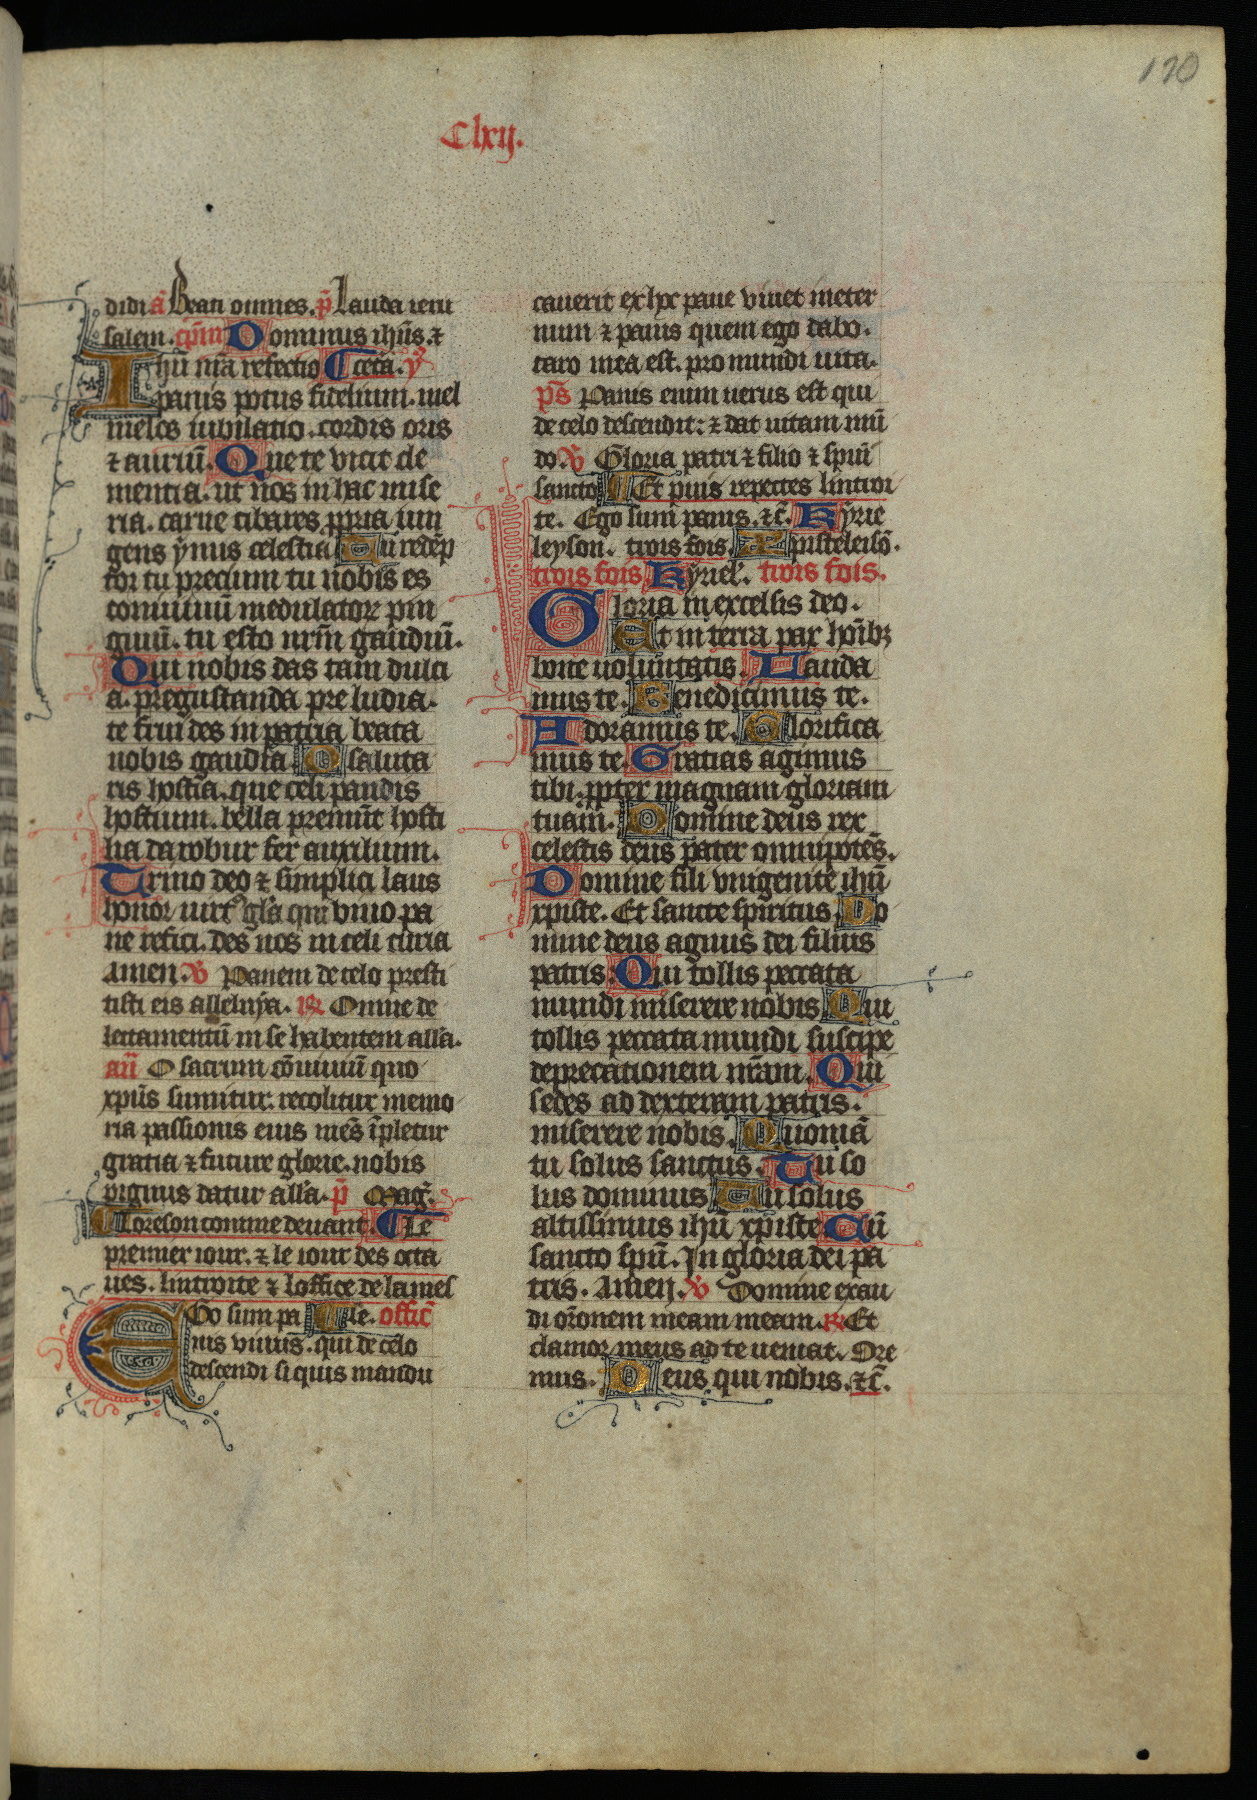 170
Clxij.
didi a̅ Beati omnes. p̅ Lauda ieru
salem. cp̅m Dominus ih̅us. ⁊
Ihu̅ nr̅a refectio ¶ Ceta. y̅
panis potus fidelium. mel
melos iubilatio. cordis oris
⁊ auriu̅. Que te vicit cle
mentia. ut nos in hac mise
ria. carne cibares ppria iun
gens ymnis celestia Tu rede̅p
tor tu precium tu nobis es
conuiuiu̅ medulatorꝝ pin
guiu̅. tu esto nr̅m gaudiu̅.
Qui nobis das tam dulci
a. pregustanda preludia.
te frui des in patria beata
nobis gaudia. O saluta
ris hostia. que celi pandis
hostium. bella premu̅t hosti
lia da robur fer auxilium.
Trino deo ⁊ simplici laus
honor uirt' gl̅a qui vnio pa
ne refici. des nos in celi curia
amen. V̅ Panem de celo presti
tisti eis alleluya. R̅ Omne de
lectamentu̅ in se habentem all̅a.
an̅ O sacrum co̅uiuiu̅ quo
xp̅us sumitur. recolitur memo
ria passionis eius me̅s i̅pletur
gratia ⁊ future glorie. nobis
pignus datur all̅a. p̅ Mag̅.
¶ loreson comme deuant. ¶ Le
premier iour. ⁊ le iour des octa
ues. lintroite ⁊ loffice de la mes
Ego sum pa ¶ se. offic̅
nis viuus. qui de celo
descendi si quis mandu
cauerit ex hoc pane viuet in eter
num ⁊ panis quem ego dabo.
caro mea est. pro mundi uita.
ps̅ Panis enim uerus est qui
de celo descendit: ⁊ dat uitam mu̅
do. V̅ Gloria patri ⁊ filio ⁊ spiri̅
sancto ¶ Et puis repectes lintroi
te. Ego sum panis. ⁊c̅. Kyrie
leyson. trois fois. Xpisteleiso̅.
trois fois. Kyriel̅. trois fois.
Gloria in excelsis deo.
Et in terra pax ho̅ibꝫ
bone uoluntatis. Lauda
mus te. Benedicimus te.
Adoramus te. Glorifica
mus te. Gratias agimus
tibi. ppter magnam gloriam
tuam. Domine deus rex
celestis deus pater omnipote̅s.
Domine fili vnigenite ihu̅
xpiste. Et sancte spiritus. Do
mine deus agnus dei filius
patris. Qui tollis peccata
mundi miserere nobis Qui
tollis peccata mundi suscipe
deprecationem nr̅am. Qui
sedes ad dexteram patris.
miserere nobis. Quonia̅
tu solus sanctus. Tu so
lus dominus Tu solus
altissimus ihu̅ xpiste Cu̅
sancto spu̅. In gloria dei pa
tris. Amen. V̅ Domine exau
di or̅onem meam meam. R̅ Et
clamor meus ad te ueniat. Ore
mus. Deus qui nobis. ⁊c̅.